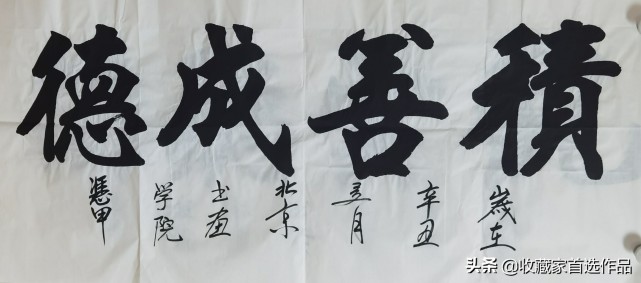 積善成德
歲在
辛丑
五月
北京
书画
学院
头条 @收藏家首选作品